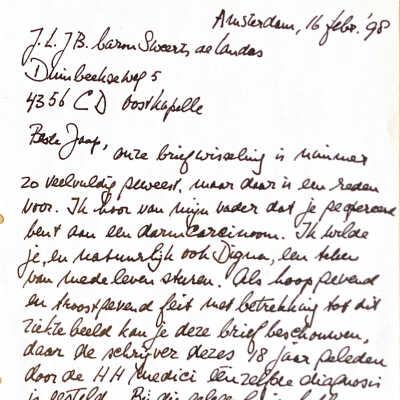 Amsterdam, 16 febr. '98
J.L.J.B. baron Sweerts de Landas
Duinbeekseweg 5
4356 CD Oostkapelle
Beste Jaap,
onze briefwisseling is nimmer
zo veelvuldig geweest, maar daar is een reden
voor. Ik hoor van mijn vader dat je geopereerd
bent aan een darmcarcinoom. Ik wilde
je, en natuurlijk ook Digna, een teken
van medeleven sturen. Als hoopgevend
en troostgevend feit met betrekking tot dit
ziektebeeld kan je deze brief beschouwen,
daar de schrijver dezes 18 jaar geleden
door de HH medici eenzelfde diagnosis
is gesteld. Bij die